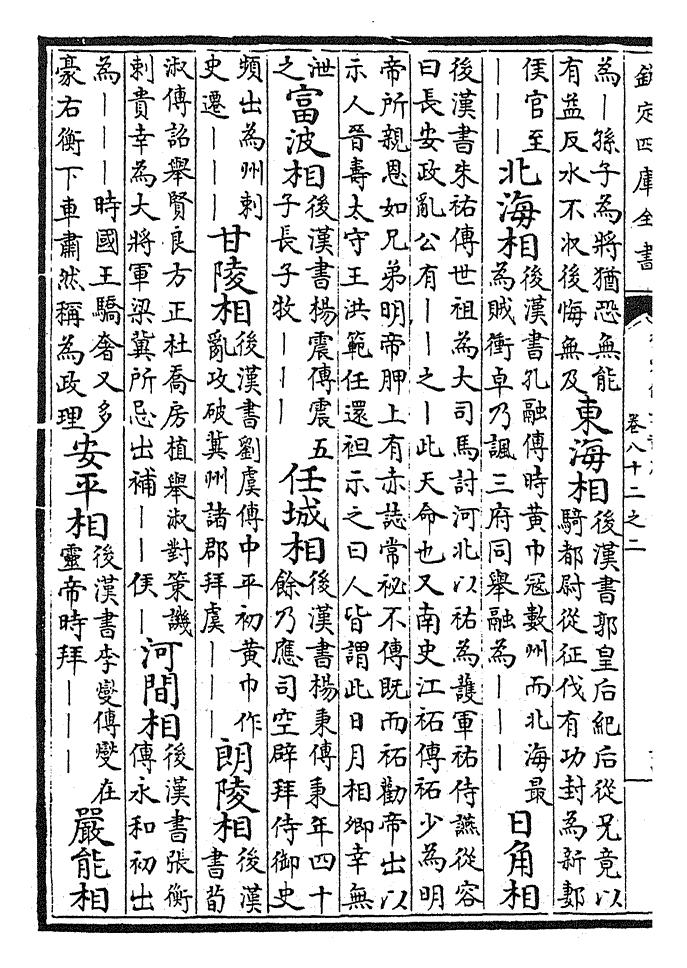 欽定四庫全書
卷八十二之二
為｜孫子為將猶恐無能
有益反水不収後悔無及
東海相
後漢書郭皇后紀后從兄竟以
騎都尉從征伐有功封為新郪
侯官至
｜｜｜
北海相
後漢書孔融傳時黄巾冦數州而北海最
為賊衝卓乃諷三府同舉融為｜｜｜
日角相
後漢書朱祐傳世祖為大司馬討河北以祐為䕶軍祐侍讌從容
曰長安政亂公有｜｜之｜此天命也又南史江祏傳祏少為明
帝所親恩如兄弟明帝胛上有赤誌常祕不傳既而祏勸帝出以
示人晉壽太守王洪範任還袒示之曰人皆謂此日月相卿幸無
泄
之
富波相
後漢書楊震傳震五
子長子牧｜｜｜
任城相
後漢書楊秉傳秉年四十
餘乃應司空辟拜侍御史
頻出為州刺
史遷｜｜｜
甘陵相
後漢書劉虞傳中平初黄巾作
亂攻破冀州諸郡拜虞｜｜｜
朗陵相
後漢
書荀
淑傳詔舉賢良方正杜喬房植舉淑對策譏
刺貴幸為大將軍梁冀所忌出補｜｜侯｜
河間相
後漢書張衡
傳永和初出
為｜｜｜時國王驕奢又多
豪右衡下車肅然稱為政理
安平相
後漢書李燮傳燮在
靈帝時拜｜｜｜
嚴能相